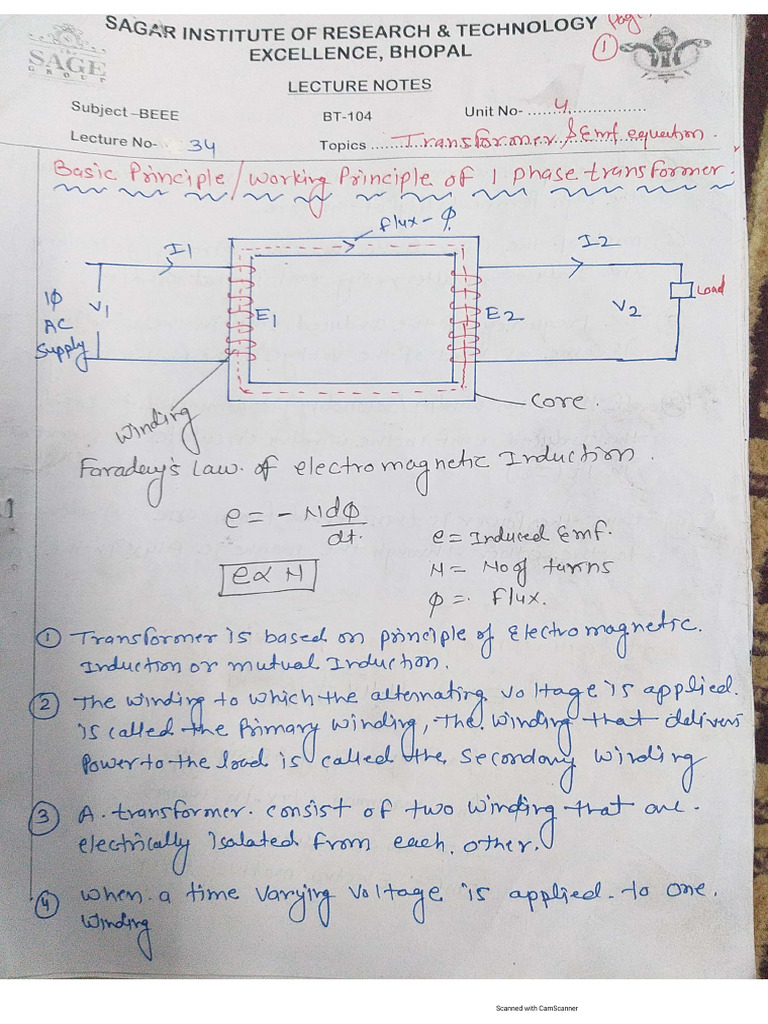 SAGAR INSTITUTE OF RESEARCH & TECHNOLOGY
EXCELLENCE, BHOPAL
Page
1
THE
SAGE
GROUP
LECTURE NOTES
Subject –BEEE
BT-104
Unit No- ....... 4 ...................
Lecture No- 34
Topics ....... Transformer, & Emf equation.
Basic Principle / Working Principle of 1 phase transformer.
flux - Φ
I1
I2
1Φ
AC
Supply
V1
E1
E2
V2
Load
Winding
Core.
Faraday's Law of electromagnetic Induction.
e = - N dΦ
dt.
e = Induced Emf.
e ∝ N
N = No of turns
Φ = flux.
1 Transformer is based on principle of Electromagnetic.
Induction or mutual Induction.
2 The winding to which the alternating voltage is applied.
is called the Primary winding, The winding that delivers
Power to the load is called the Secondary winding
3 A transformer consist of two winding that are
electrically isolated from each other.
4 When a time varying voltage is applied to one.
winding
Scanned with CamScanner